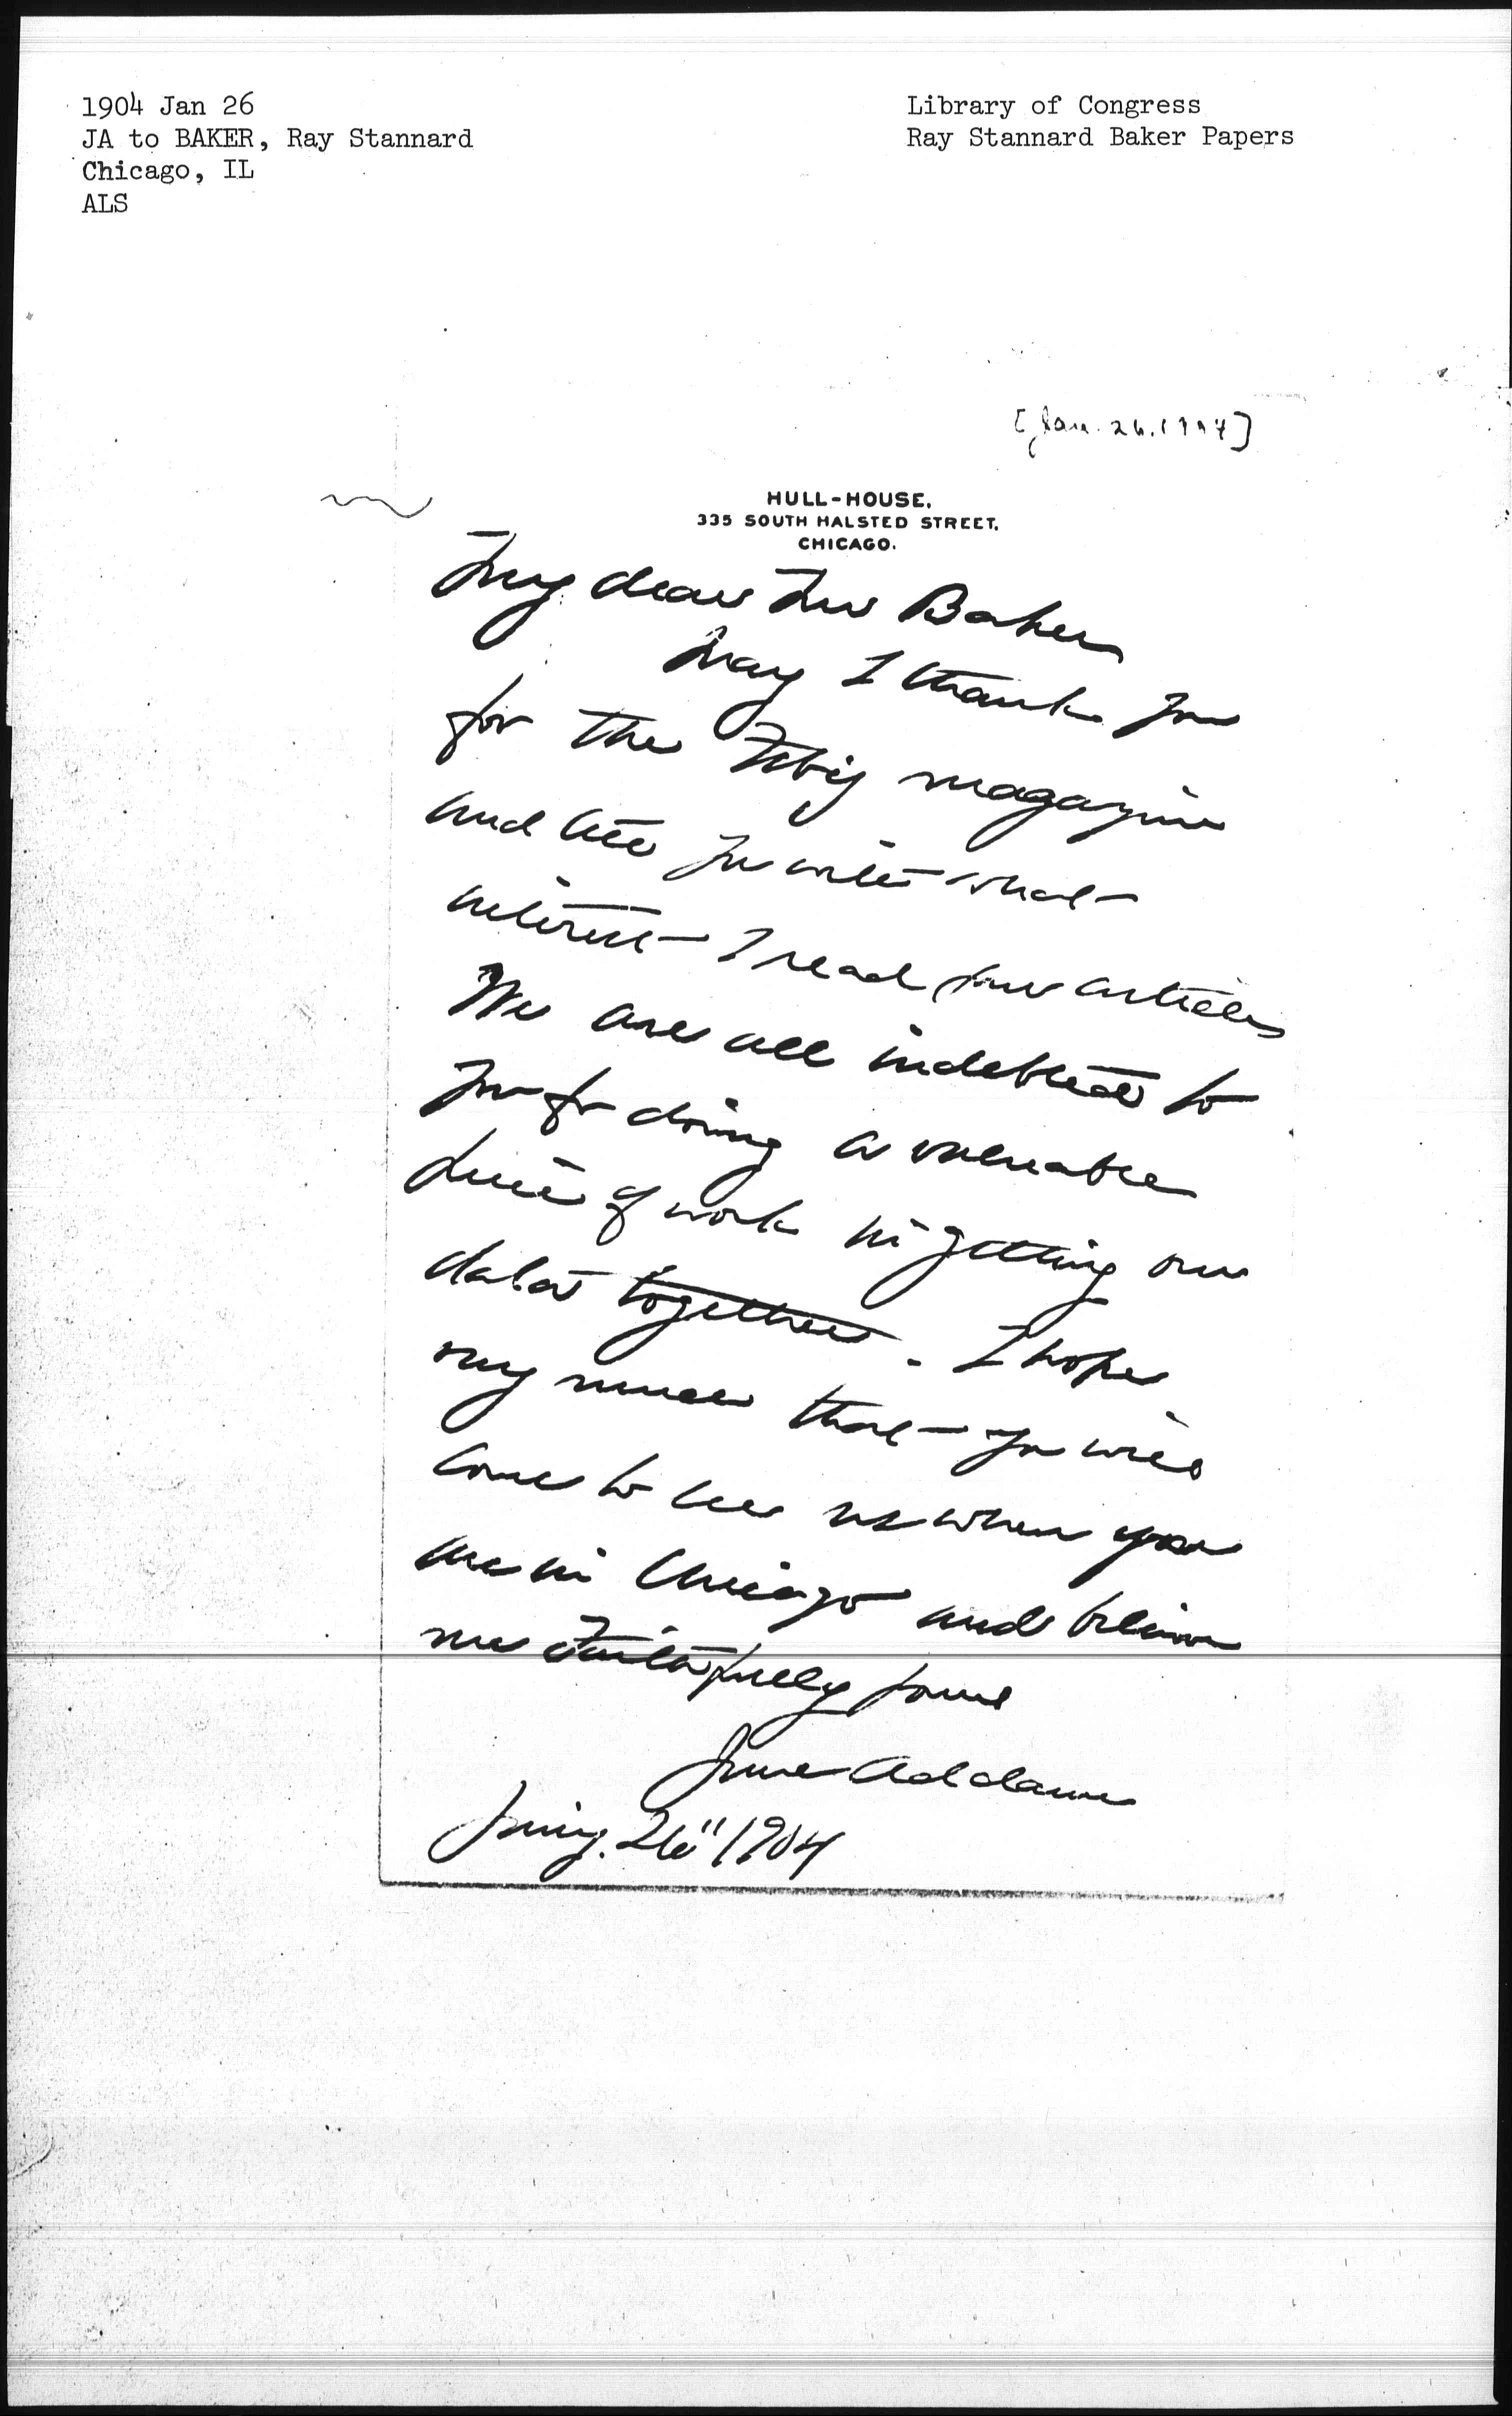 1904 Jan 26
JA to BAKER, Ray Stannard
Chicago, IL
ALS
Library of Congress
Ray Stannard Baker Papers
[Jan. 26. 1904]
HULL-HOUSE.
335 SOUTH HALSTED STREET.
CHICAGO.
My dear Mr Baker
May I thank you
for the Feb'y magazine
and tell you with what
interest I read your articles
We are all indebted to
you for doing a valuable
piece of work in getting our
data together. I hope
very much that you will
come to see us when you
are in Chicago and believe
me faithfully yours
Jane Addams
Jan'y. 26" 1904